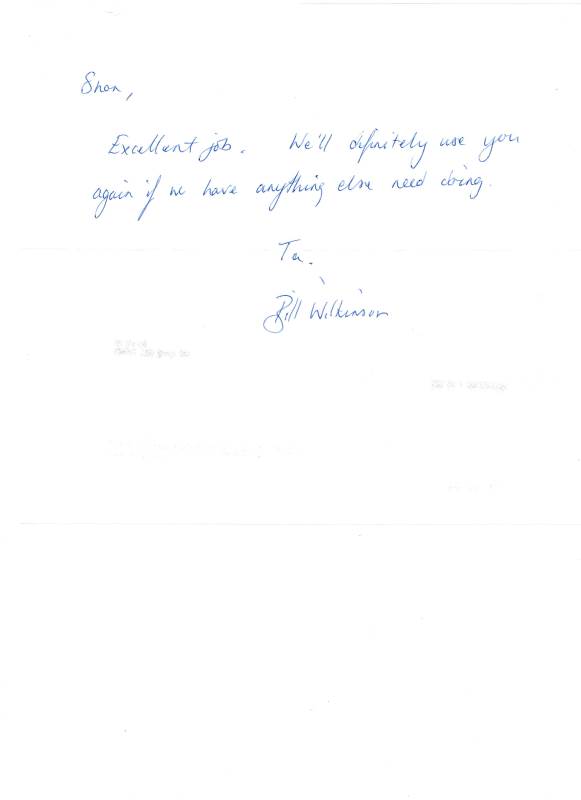 Shon,
Excellent job. We'll definitely use you
again if we have anything else need doing.
Ta.
Bill Wilkinson